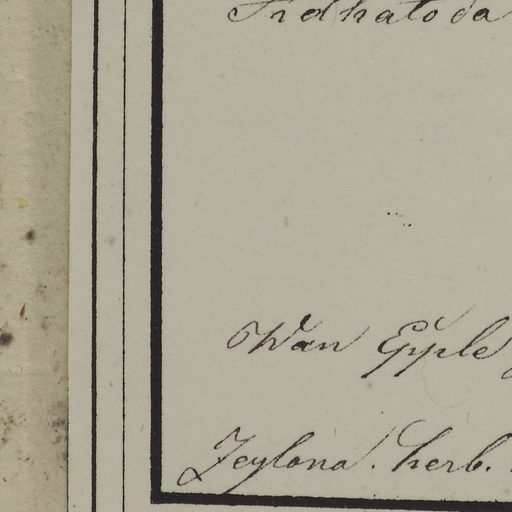 Adhatoda
Wan Epple
Zeylona. herb.